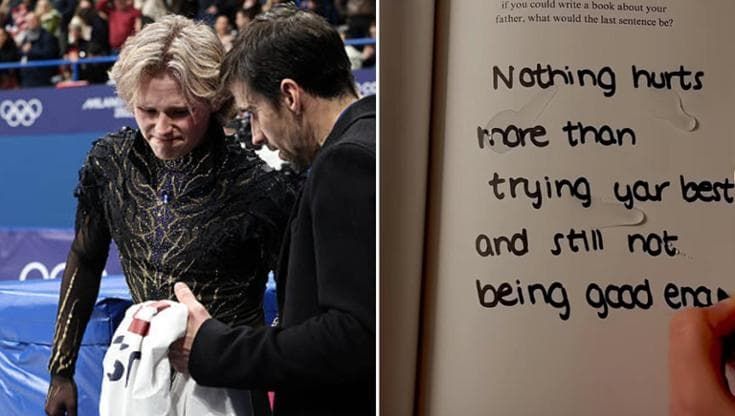 if you could write a book about your
father, what would the last sentence be?
Nothing hurts
more than
trying yar best
and still not
being good